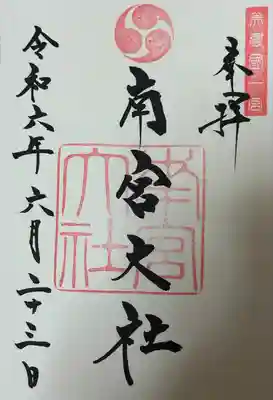 美濃國一宮
奉拝
南宮大社
南宮大社
令和六年六月二十三日